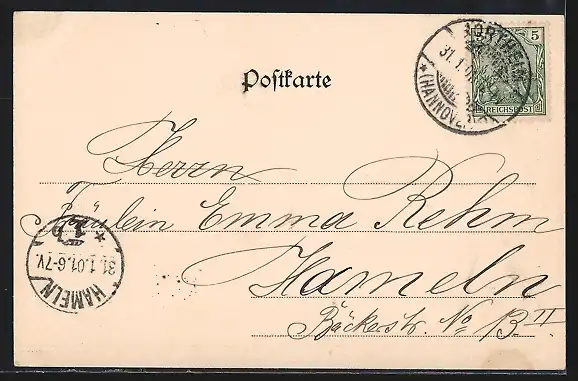 Postkarte
NORTHEIM
31.1.01
* (HANNOVER) *
5
REICHSPOST
Herrn
Fräulein Emma Rehm
Hameln
Bäckerstr. No 13 II
* 1b
31.1.01.6-7V.
HAMELN